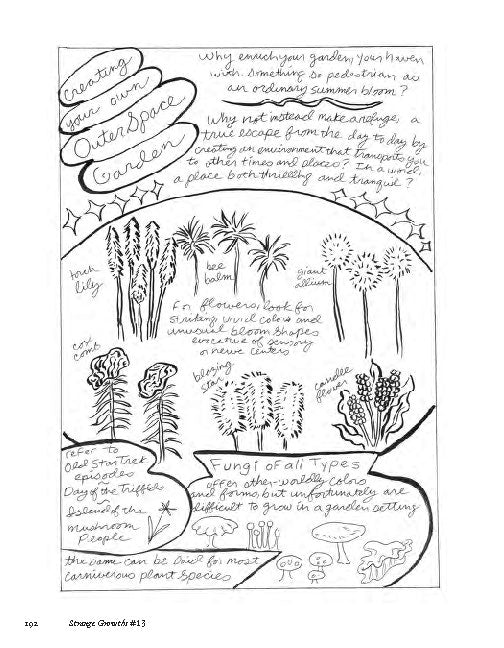 Creating
your own
Outer Space
Garden
Why enrich your garden, your haven
with something so pedestrian as
an ordinary summer bloom?
Why not instead make a refuge, a
true escape from the day to day by
creating an environment that transports you
to other times and places? In a word,
a place both thrilling and tranquil?
torch
lily
bee
balm
giant
allium
For flowers, look for
striking, vivid colors and
unusual bloom shapes
evocative of sensory
or nerve centers
cox
comb
blazing
star
candle
flower
refer to
Old Star Trek
episodes
~
Day of the Triffids
~
Island of the
Mushroom
People
Fungi of all Types
offer other-worldly colors
and forms, but unfortunately are
difficult to grow in a garden setting
the same can be said for most
carnivorous plant species
192 Strange Growths #13